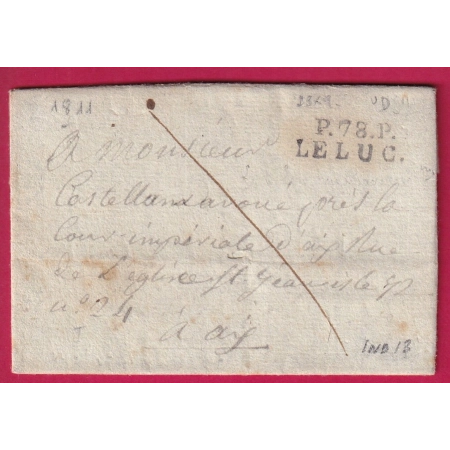 1811
P.78.P.
LE LUC.
A Monsieur
Castellan avoué près la
Cour impériale d'aix Rue
de L'eglise St
n° 24
à aix
IND 13